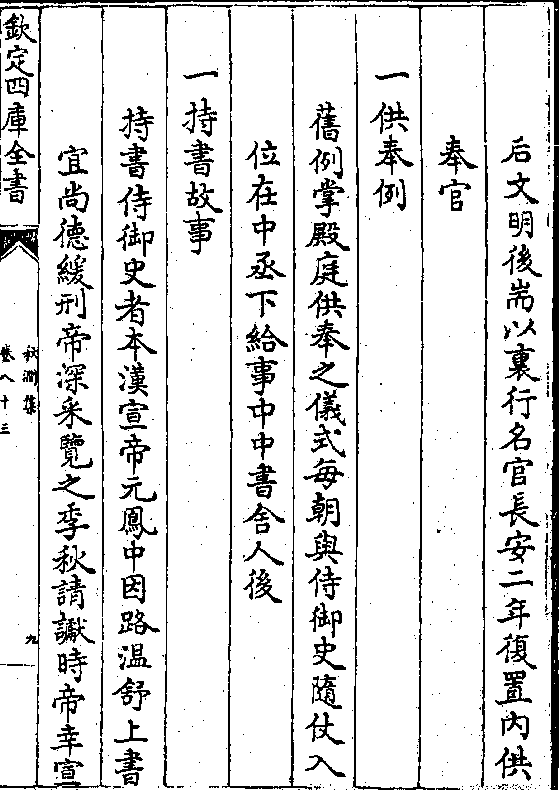 后文明後耑以裏行名官長安二年復置內供
奉官
一供奉例
舊例掌殿庭供奉之儀式每朝與侍御史隨仗入
位在中丞下給事中中書舍人後
一持書故事
持書侍御史者本漢宣帝元鳳中因路温舒上書
宜尚德緩刑帝深采覽之季秋請讞時帝幸宣
欽定四庫全書
秋澗集
卷八十三
九